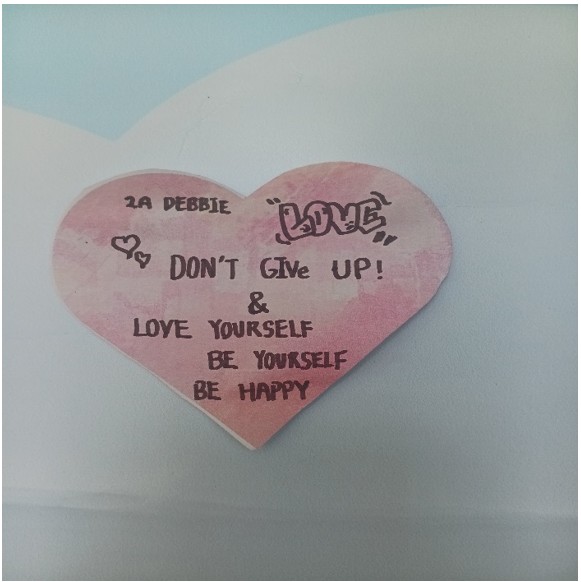 2A DEBBIE "LOVE"
DON'T GIVe UP!
&
LOVE YOURSELF
BE YOURSELF
BE HAPPY